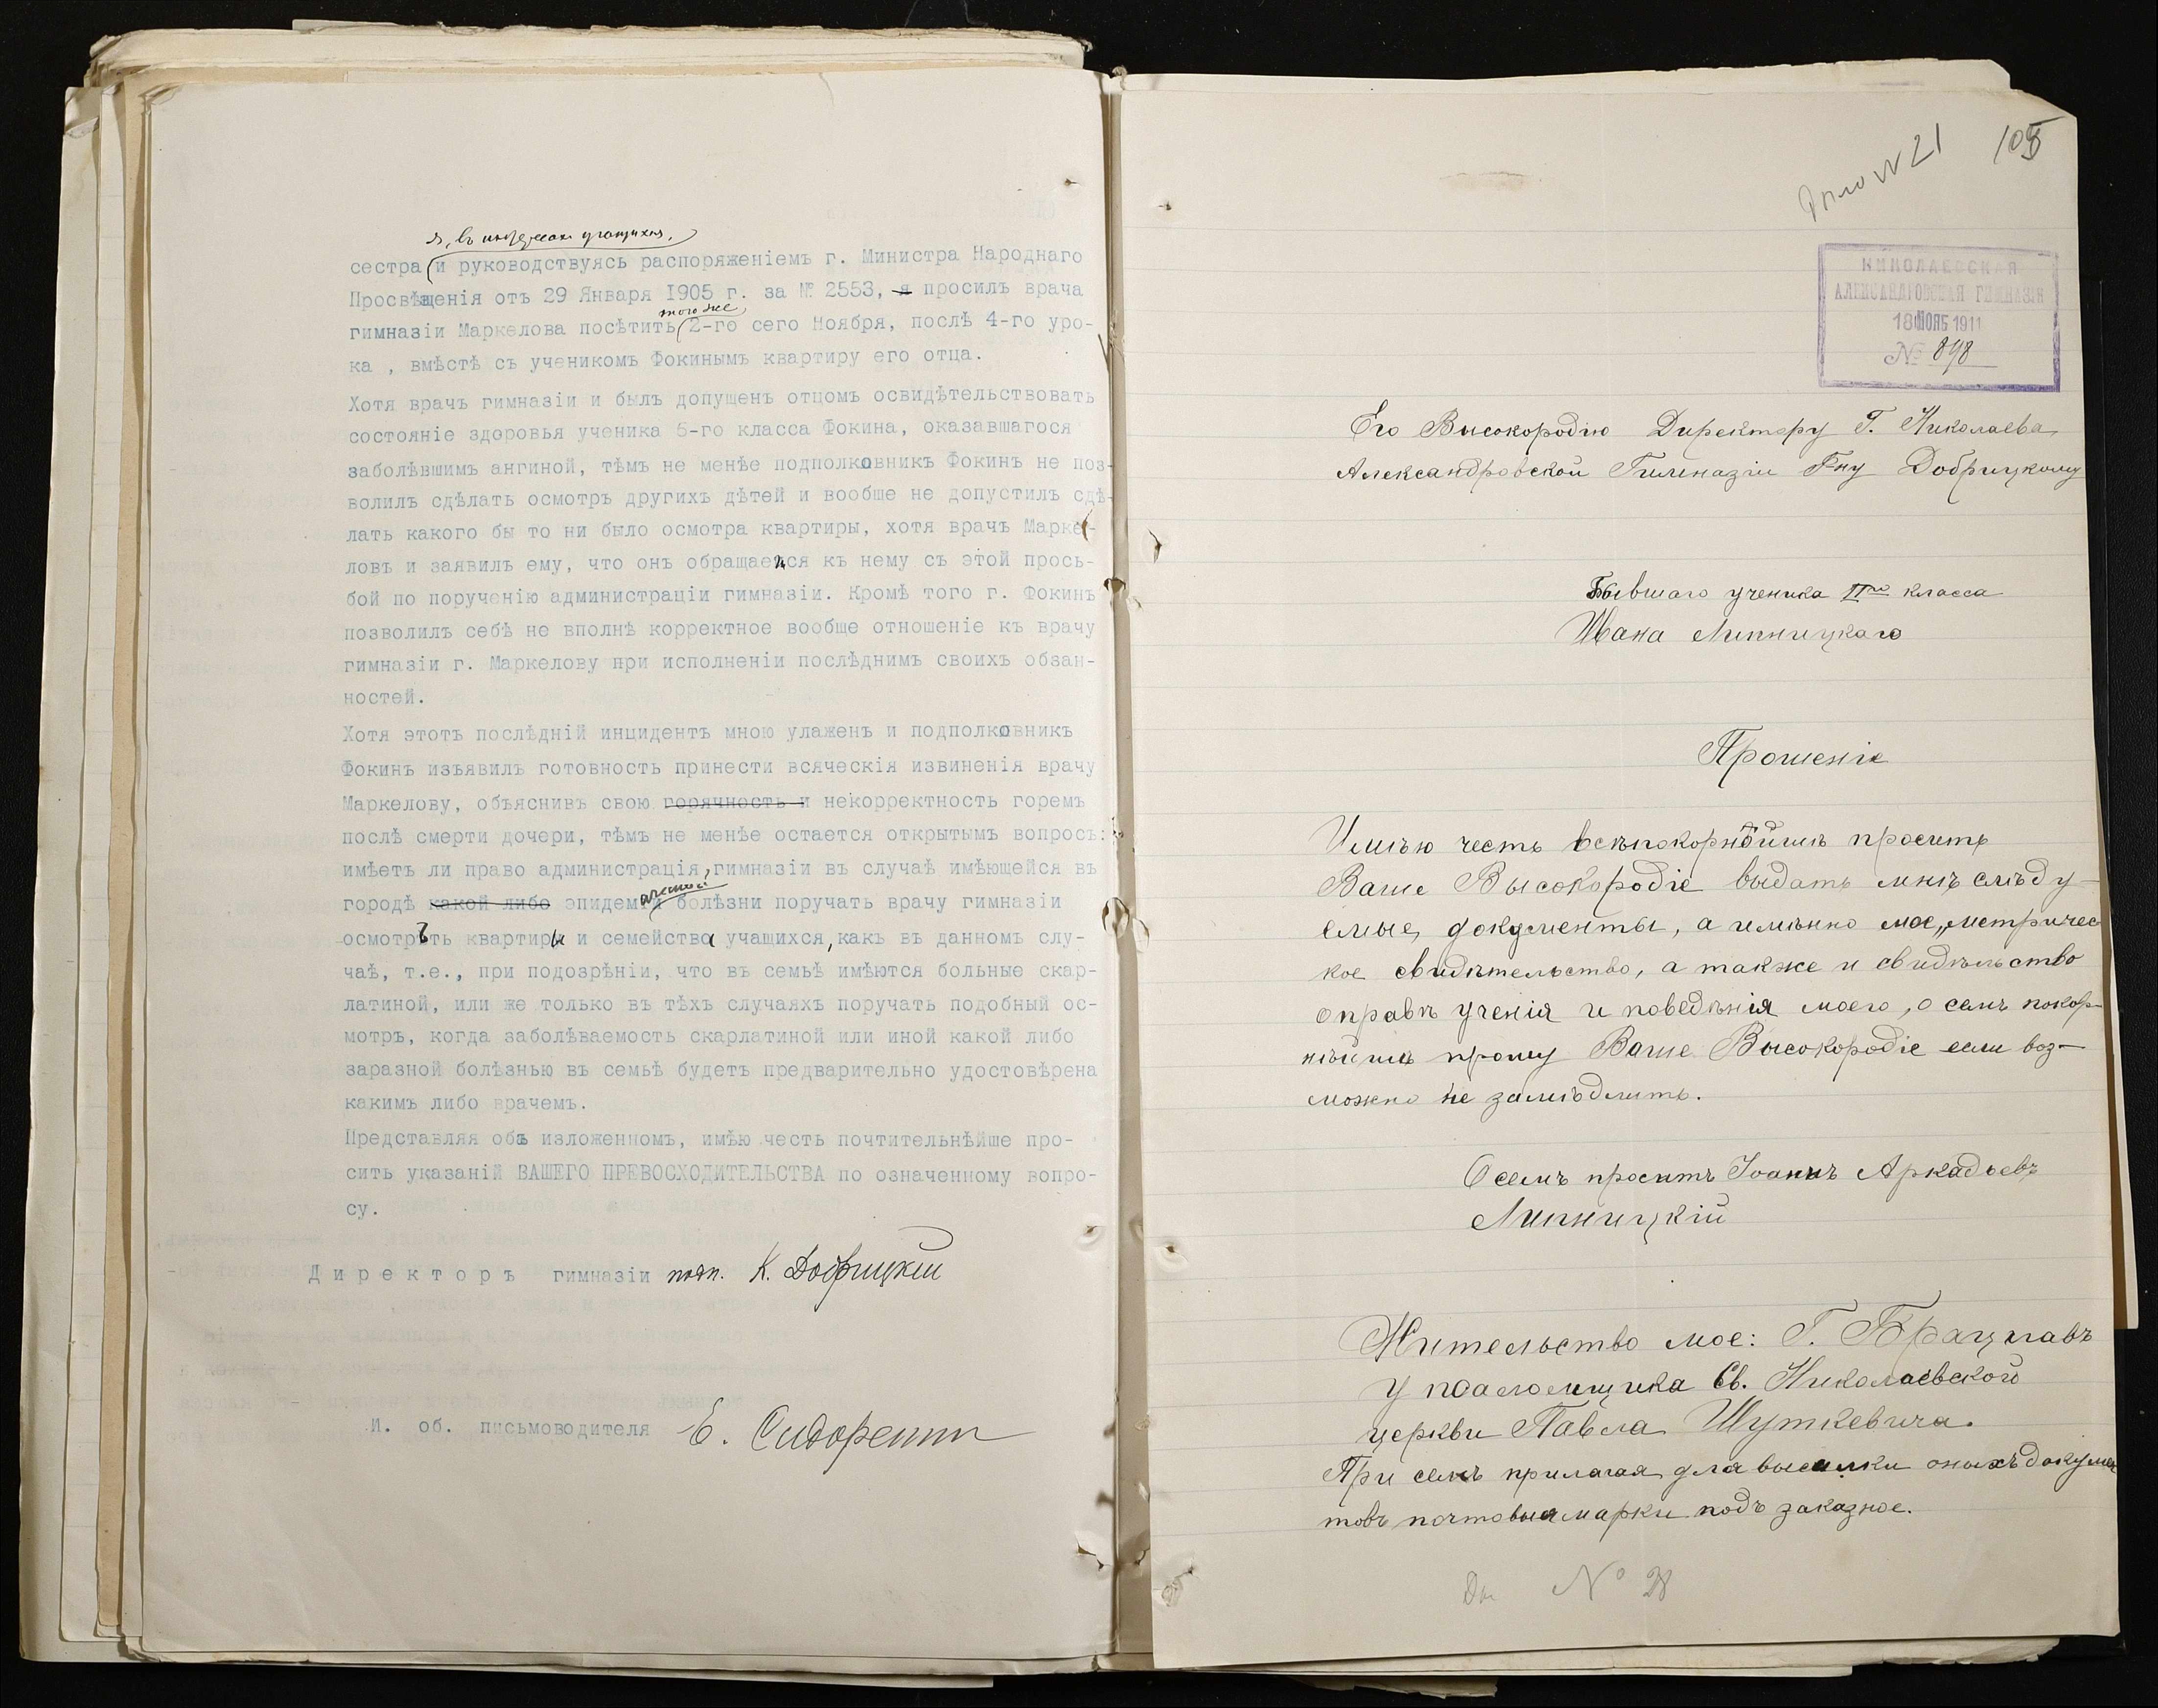 я, въ интересахъ учащихся,
сестра (и руководствуясь распоряженіемъ г. Министра Народнаго
Просвѣщенія отъ 29 Января 1905 г. за № 2553, я просилъ врача
того же
гимназіи Маркелова посѣтить (2-го сего Ноября, послѣ 4-го уро-
ка , вмѣстѣ съ ученикомъ Фокинымъ квартиру его отца.
Хотя врачъ гимназіи и былъ допущенъ отцомъ освидѣтельствовать
состояніе здоровья ученика 5-го класса Фокина, оказавшагося
заболѣвшимъ ангиной, тѣмъ не менѣе подполковникъ Фокинъ не поз-
волилъ сдѣлать осмотръ другихъ дѣтей и вообше не допустилъ сдѣ-
лать какого бы то ни было осмотра квартиры, хотя врачъ Марке-
ловъ и заявилъ ему, что онъ обращается къ нему съ этой прось-
бой по порученію администраціи гимназіи. Кромѣ того г. Фокинъ
позволилъ себѣ не вполнѣ корректное вообше отношеніе къ врачу
гимназіи г. Маркелову при исполненіи послѣднимъ своихъ обзан-
ностей.
Хотя этотъ послѣдній инцидентъ мною улаженъ и подполковникъ
Фокинъ изъявилъ готовность принести всяческія извиненія врачу
Маркелову, объяснивъ свою горячность и некорректность горемъ
послѣ смерти дочери, тѣмъ не менѣе остается открытымъ вопросъ:
имѣетъ ли право администрація, гимназіи въ случаѣ имѣющейся въ
городѣ какой либо эпидеми болѣзни поручать врачу гимназіи
осмотрѣть квартиры и семейства учащихся, какъ въ данномъ слу-
чаѣ, т.е., при подозрѣніи, что въ семьѣ имѣются больные скар-
латиной, или же только въ тѣхъ случаяхъ поручать подобный ос-
мотръ, когда заболѣваемость скарлатиной или иной какой либо
заразной болѣзнью въ семьѣ будетъ предварительно удостовѣрена
какимъ либо врачемъ.
Представляя объ изложенномъ, имѣю честь почтительнѣйше про-
сить указаній ВАШЕГО ПРЕВОСХОДИТЕЛЬСТВА по означенному вопро-
су.
Директоръ гимназіи подп. К. Добрицкій
И. об. письмоводителя Е. Сидоренко
Дѣло № 21 105
НИКОЛАЕВСКАЯ
АЛЕКСАНДРОВСКАЯ ГИМНАЗІЯ
18 НОЯБ 1911
№ 898
Его Высокородію Директору Г. Николаева
Александровской Гимназіи Г-ну Добрицкому
Бывшаго ученика II го класса
Ивана Липницкаго
Прошеніе
Имѣю честь всѣпокорнѣйшѣ просить
Ваше Высокородіе выдать мнѣ слѣду-
емые, документы, а имѣнно мое, метричес
кое свидѣтельство, а также и свидѣльство
оправѣ ученія и поведѣнія моего, о семъ покор-
нѣйшѣ прошу Ваше Высокородіе если воз-
можно не замѣдлить.
О семъ проситъ Іоаннъ Аркадьевъ
Липницкій
Жительство мое: Г. Брацлавъ
у псаломщика Св. Николаевской
церкви Павла Шуткевича.
При семъ прилагая для высылки оныхъ докумен
товъ почтовыя марки подъ заказное.
№ 28